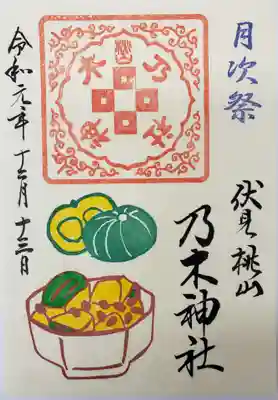 月次祭
伏見桃山
乃木神社
令和元年十二月十三日